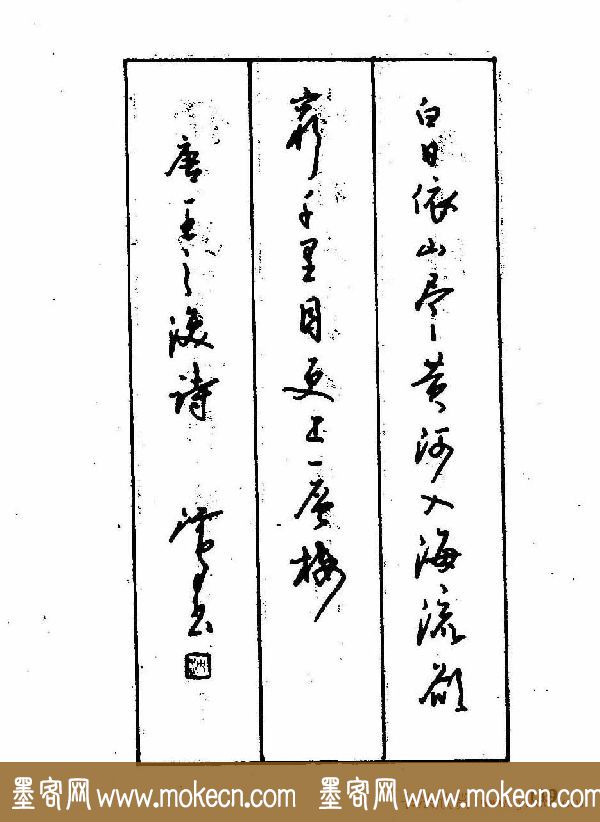 白日依山尽黄河入海流欲
穷千里目更上一层楼
唐王之涣诗
墨客网 www.mokecn.com 墨客网 www.mokecn.com